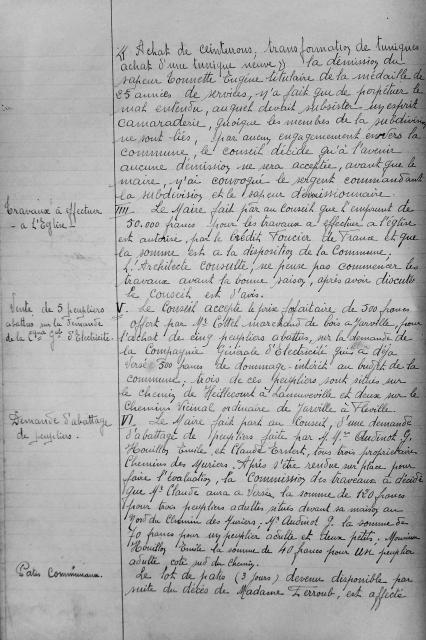 Achat de ceinturons, transformation de tuniques
achat d'une tunique neuve)) la démission du
sapeur Tonnette Eugène titulaire de la médaille de
25 années de services, n'a fait que de perpétuer le
mal entendu, auquel devait subsister un esprit
camaraderie, quoique les membres de la subdivision
ne sont liés, par aucun engagement envers la
commune, le conseil décide qu'à l'avenir
aucune démission ne sera acceptée, avant que le
maire, n'ai convoqué le sergent commandant
la subdivision et le sapeur démissionnaire.
Travaux à effectuer
à l'Eglise
IIII Le Maire fait part au Conseil que l'emprunt de
30.000 francs pour les travaux à effectuer à l'église
est autorisé, par le Crédit Foncier de France et que
la somme est à la disposition de la Commune.
L'Architecte consulté, ne pense pas commencer les
travaux avant la bonne saison, après avoir discuté
le Conseil est d'avis.
Vente de 5 peupliers
abattus sur la demande
de la Cie Gle d'Electricité
V. Le Conseil accepte le prix forfaitaire de 500 francs
offert par Mr Collet marchand de bois à Jarville, pour
l'achat de cinq peupliers abattus, sur la demande de
la Compagnie Générale d'Electricité qui a déjà
versé 500 francs de dommage-intérêt au budget de la
commune. trois de ces peupliers, sont situés sur
le chemin de Heillecourt à Laneuveville et deux sur le
Chemin Vicinal ordinaire de Jarville à Fléville.
Demande d'abattage
de peupliers.
VI. Le Maire fait part au Conseil, d'une demande
d'abattage de peupliers faite par M Mrs Audinot G.
Houillon Emile, et Claude Ernest, tous trois propriétaires
Chemin des Muriers. Après s'être rendue sur place pour
faire l'évaluation, la Commission des travaux a décidé
que Mr Claude aura à verser la somme de 120 francs
pour trois peupliers adultes situés devant sa maison au
Nord du Chemin des Muriers; Mr Audinot G. la somme de
francs pour un peuplier adulte et deux petits, Monsieur
Houillon Emile la somme de 40 francs pour un peuplier
adulte coté sud du Chemin.
Pates Communaux.
Le lot de pates (3 jours) devenu disponible par
suite du décès de Madame, est affecté